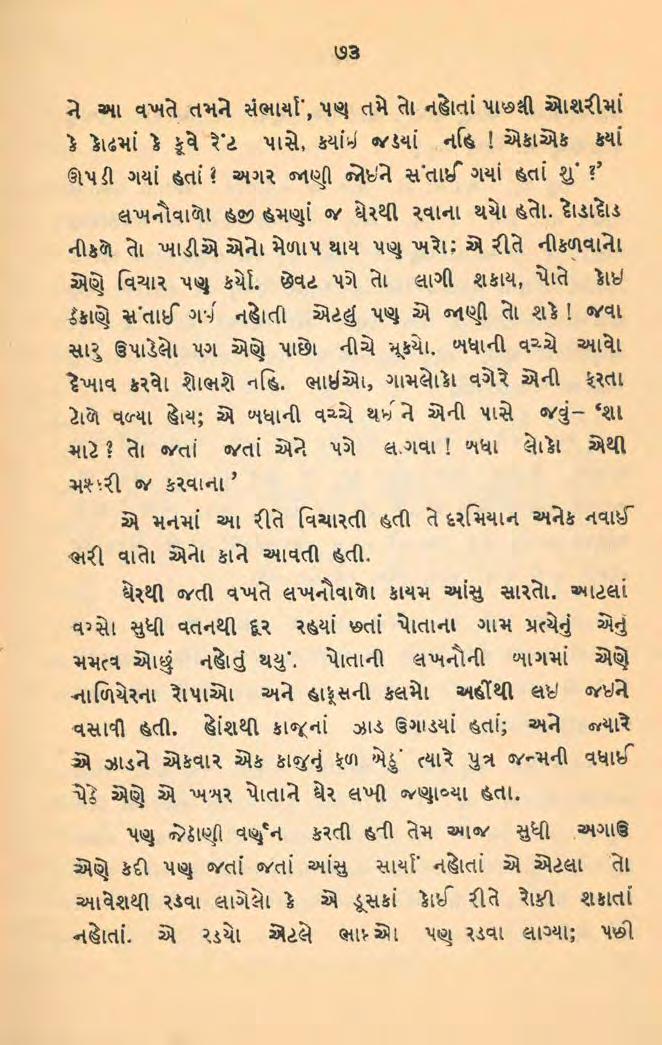 ૭૩
ને આ વખતે તમને સંભાર્યાં, પણ તમે તો નહોતાં પાછલી ઓશરીમાં
કે કોઢમાં કે કૂવે રેંટ પાસે, કયાંઈ જડયાં નહિ ! એકાએક કયાં
ઊપડી ગયાં હતાં ? અગર જાણી જોઈને સંતાઈ ગયાં હતાં શું ?’
લખનૌવાળો હજી હમણાં જ ઘેરથી રવાના થયો હતો. દોડાદોડ
નીકળે તો ખાડીએ એનો મેળાપ થાય પણ ખરો; એ રીતે નીકળવાનો
એણે વિચાર પણ કર્યો. છેવટ પગે તો લાગી શકાય, પોતે કોઈ
ઠેકાણે સંતાઈ ગઈ નહોતી એટલું પણ એ જાણી તો શકે ! જવા
સારુ ઉપાડેલો પગ એણે પાછો નીચે મૂકયો. બધાની વચ્ચે આવો
દેખાવ કરવો શોભશે નહિ. ભાઈઓ, ગામલોકો વગેરે એની ફરતા
ટોળે વળ્યા હોય; એ બધાની વચ્ચે થઈ ને એની પાસે જવું– ‘શા
માટે ? તો જતાં જતાં એને પગે લાગવા ! બધા લોકો એથી
મશ્કરી જ કરવાના ’
એ મનમાં આ રીતે વિચારતી હતી તે દરમિયાન અનેક નવાઈ
ભરી વાતો એનો કાને આવતી હતી.
ઘેરથી જતી વખતે લખનૌવાળો કાયમ આંસુ સારતો. આટલાં
વરસો સુધી વતનથી દૂર રહયાં છતાં પોતાના ગામ પ્રત્યેનું એનું
મમત્વ ઓછું નહોતું થયું. પોતાની લખનૌની બાગમાં એણે
નાળિયેરના રોપાઓ અને હાફૂસની કલમો અહીંથી લઈ જઈને
વસાવી હતી. હોંશથી કાજૂનાં ઝાડ ઉગાડયાં હતાં; અને જ્યારે
એ ઝાડને એકવાર એક કાજુનું ફળ બેઠું ત્યારે પુત્ર જન્મની વધાઈ
પેઠે એણે એ ખબર પોતાને ઘેર લખી જણાવ્યા હતા.
પણ જેઠાણી વર્ણન કરતી હતી તેમ આજ સુધી અગાઉ
એણે કદી પણ જતાં જતાં આંસુ સાર્યાં નહોતાં એ એટલા તો
આવેશથી રડવા લાગેલો કે એ ડૂસકાં કોઈ રીતે રોકી શકાતાં
નહોતાં. એ રડયો એટલે ભાઈઓ પણ રડવા લાગ્યા; પછી